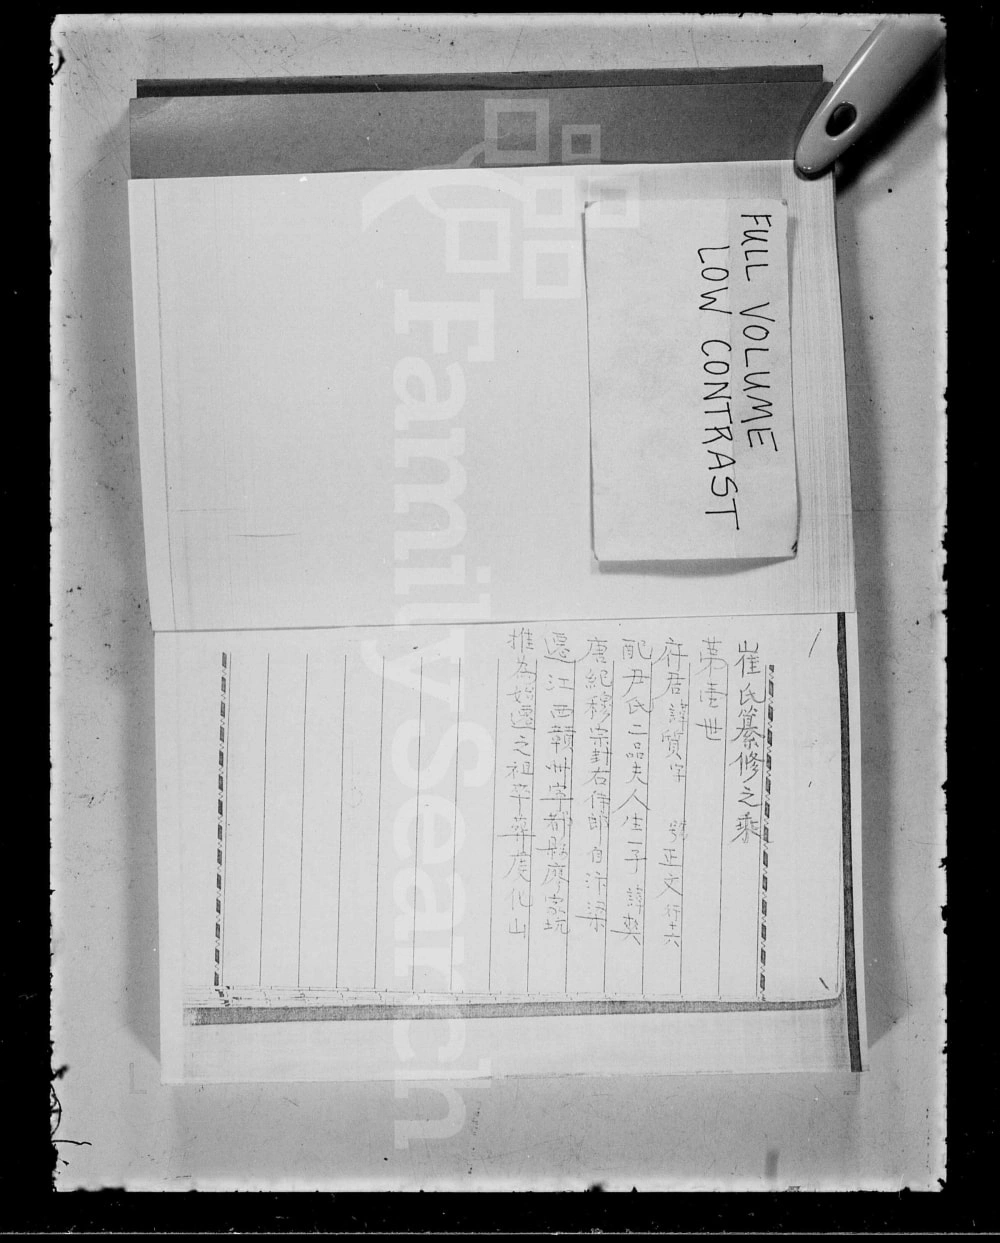 FULL VOLUME
LOW CONTRAST
崔氏纂修之乘
苐壹世
府君諱質字 號正文行十六
配尹氏二品夫人生一子諱奬
唐紀穆宗封右侍郎自汴梁
遷江西贛州寧都縣廖家坑
推為始遷之祖卒葬虔化山
FamilySearch